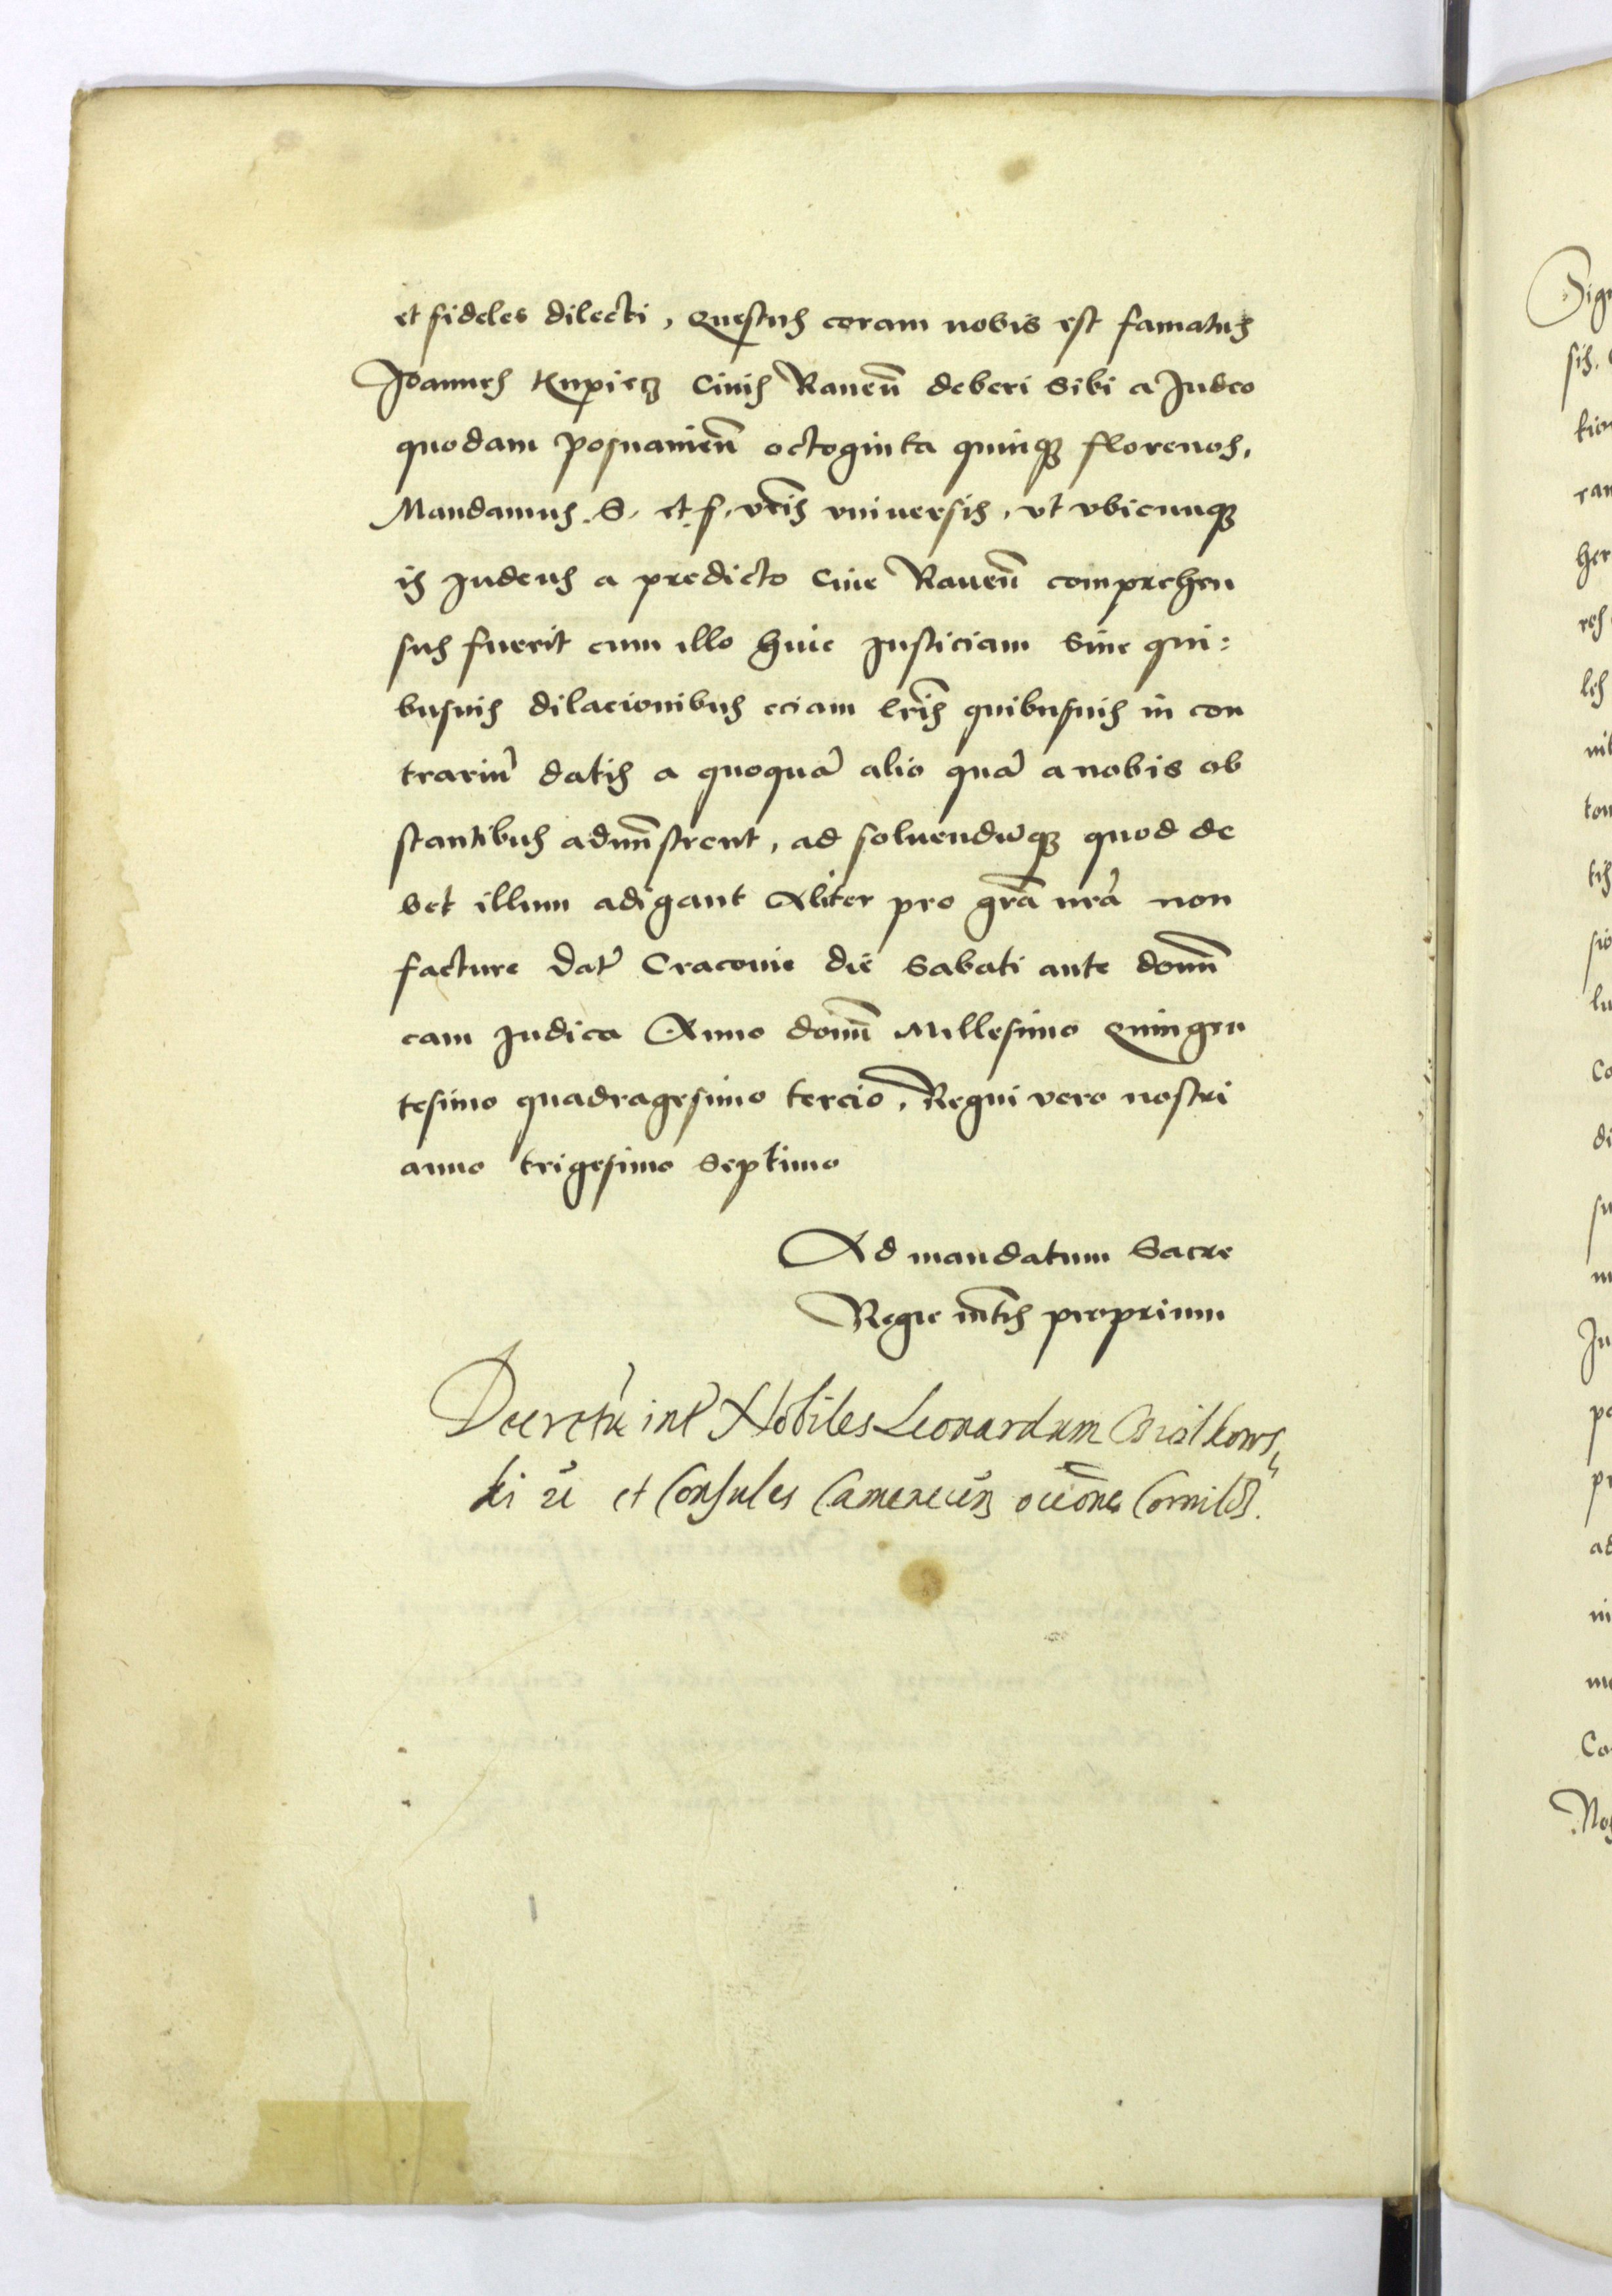 et fideles dilecti, Questus coram nobis est famatus
Joannes Kupiecz Civis Raveñ deberi sibi a Judeo
quodam posnanieñ octoginta quinqꝫ florenos,
Mandamus .S. et .f. vr̃is universis, vt vbicunqꝫ
is Judeus a predicto cive Raveñ comprehen
sus fuerit cum illo huic Justiciam sine qui:
busvis dilacionibus eciam lr̃is quibusvis in con
trariũ datis a quoquã alio quã a nobis ob
stantibus admĩstrent, ad solvendũqꝫ quod de
bet illum adigant Aliter pro gr̃a nr̃a non
facture Dat̃ Cracovie die Sabati ante domĩ
cam Judica Anno domĩ Millesimo Quingen
tesimo quadragesimo tercio, Regni vero nostri
anno trigesimo septimo
Ad mandatum Sacre
Regie mt̃is proprium
Decretũ int̃ Nobiles Leonardum
ki et Consules